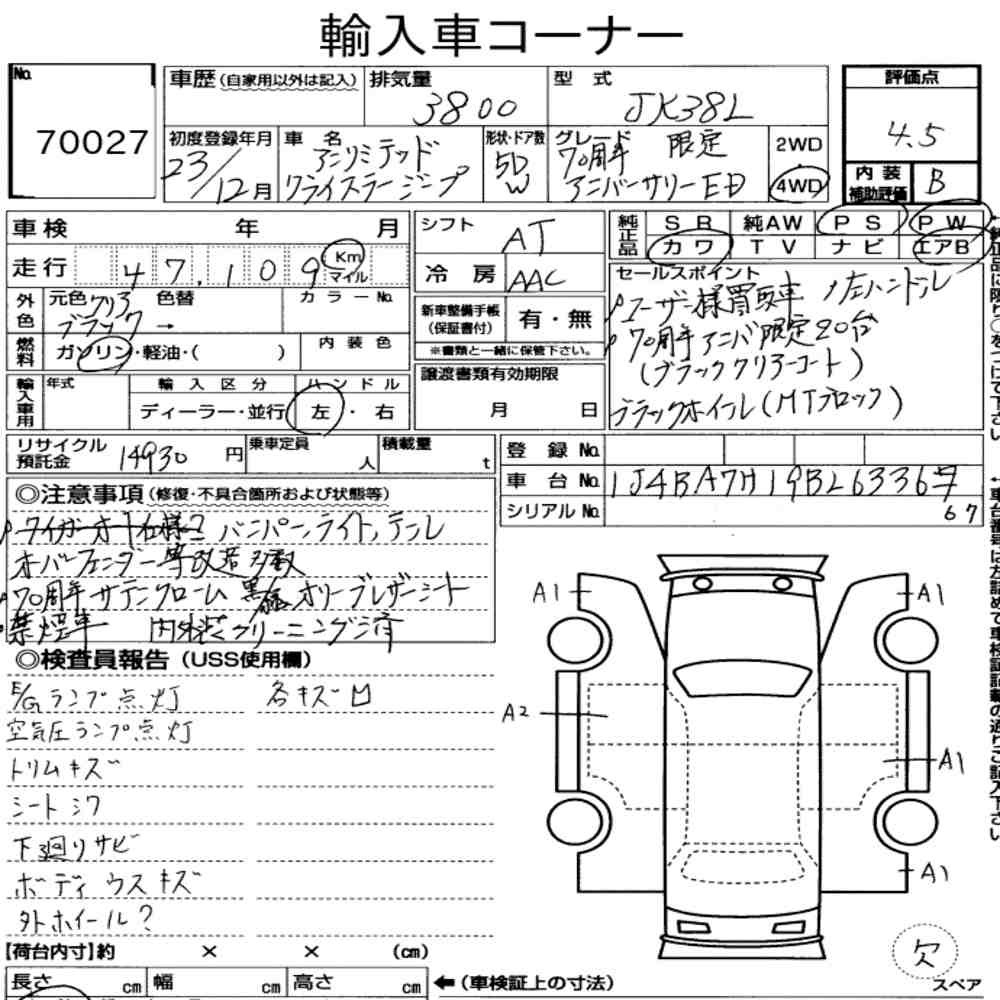 輸入車コーナー
No.
70027
車歴(自家用以外は記入)
排気量
3800
型 式
JK38L
評価点
4.5
内装
補助評価
B
初度登録年月
23/12月
車 名
アンリミテッド
クライスラージープ
形状・ドア数
5D
W
グレード
70周年 限定
アニバーサリーED
2WD
・
4WD
車検 年 月
走行 47,109 Km
マイル
シフト
AT
冷房 AAC
純正品
SR 純AW PS PW
カワ TV ナビ エアB
セールスポイント
ユーザー様買取車 左ハンドル
70周年アニバ限定20台
(ブラッククリアーコート)
ブラックホイール(MTブロック)
外色
元色 クリア 色替
ブラック →
カラーNo.
燃料
ガソリン・軽油・( )
内装色
新車整備手帳
(保証書付)
有・無
※書類と一緒に保管下さい。
輸入車用
年式
輸入区分
ディーラー・並行
ハンドル
左・右
譲渡書類有効期限
月 日
リサイクル
預託金
14930 円
乗車定員
人
積載量
t
登録 No.
車台 No. 1J4BA7H19BL63367
67
シリアル No.
◎注意事項(修復・不具合箇所および状態等)
バンパー、ライト、テール
オーバーフェンダー等改造多数
70周年サテンクローム 黒/緑オリーブレザーシート
禁煙車 内外装クリーニング済
◎検査員報告(USS使用欄)
E/Gランプ点灯 各キズ凹
空気圧ランプ点灯
トリムキズ
シートシワ
下廻りサビ
ボディウスキズ
外ホイール?
A1
A1
A2
A1
A1
欠
スペア
【荷台内寸】約 × × (cm)
長さ cm 幅 cm 高さ cm
←(車検証上の寸法)